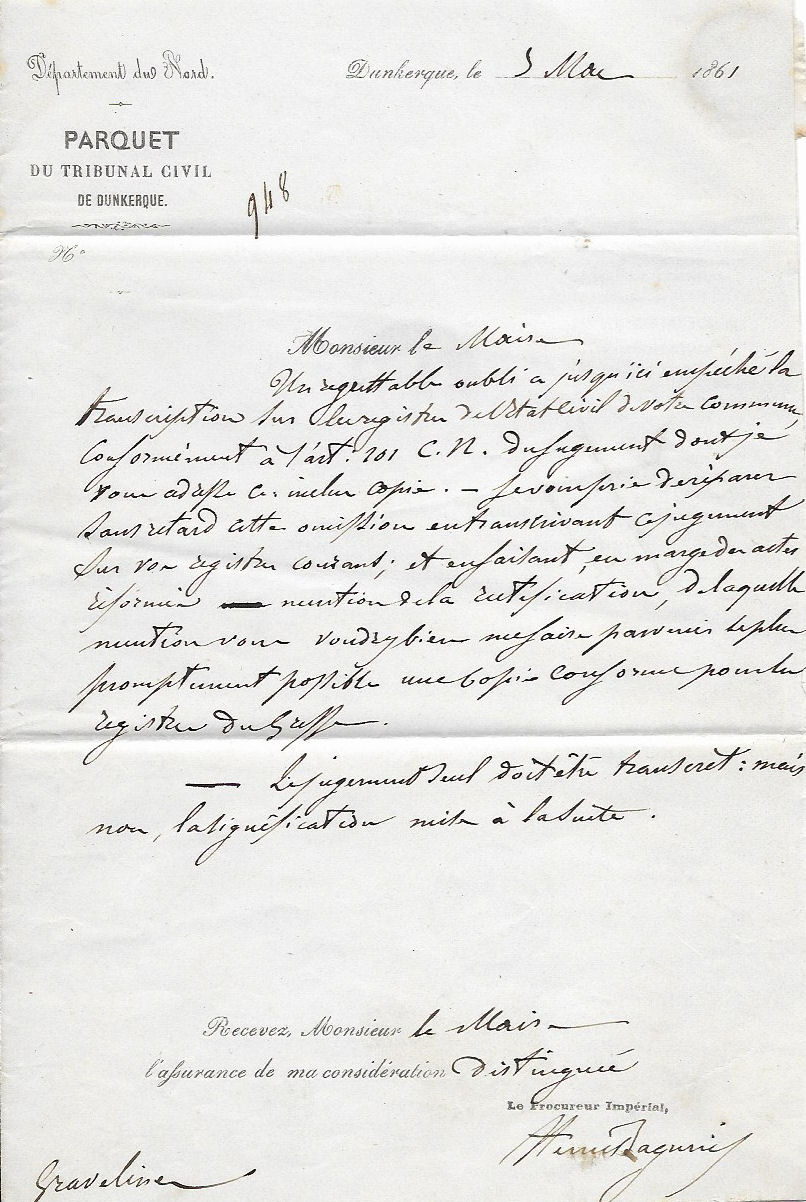 Département du Nord.
Dunkerque, le 5 Mai 1861
PARQUET
DU TRIBUNAL CIVIL
DE DUNKERQUE.
948
N°
Monsieur le Maire
Un regrettable oubli a jusqu'ici empêché la
transcription sur les registres de l'Etat Civil de votre commune,
conformément à l'art. 101 C. N. du jugement dont je
vous adresse ci-inclus copie. — Je vous prie de réparer
sans retard cette omission en transcrivant ce jugement
sur vos registres courants; et en faisant, en marge des actes
réformés — mention de la rectification, de laquelle
mention vous voudrez bien me faire parvenir le plus
promptement possible une copie conforme pour les
registres du Greffe.
— Le jugement seul doit être transcrit : mais
non, la signification mise à la suite.
Recevez, Monsieur le Maire
l'assurance de ma considération distinguée
Le Procureur Impérial,
Gravelines